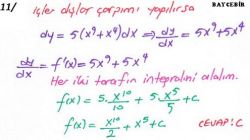 BAYCEBİR
11/ İçler dışlar çarpımı yapılırsa
dy = 5(x⁹+x⁴)dx ⇒ dy/dx = 5x⁹+5x⁴
dy/dx = f'(x) = 5x⁹+5x⁴
Her iki tarafın integralini alalım.
f(x) = 5. x¹⁰/10 + 5. x⁵/5 + c.
f(x) = x¹⁰/2 + x⁵ + c. CEVAP: C